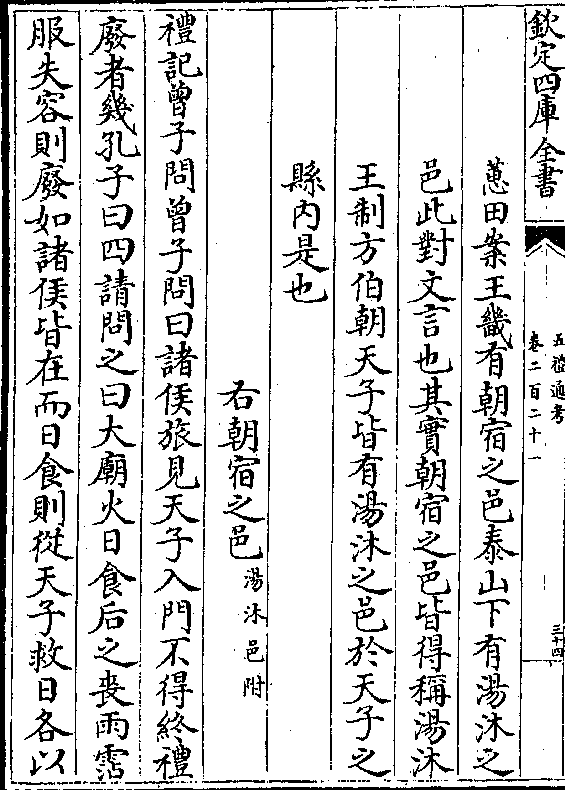 欽定四庫全書
五禮通考
卷二百二十一
三十四
蕙田案王畿有朝宿之邑泰山下有湯沐之
邑此對文言也其實朝宿之邑皆得稱湯沐
王制方伯朝天子皆有湯沐之邑於天子之
縣内是也
右朝宿之邑湯沐邑附
禮記曾子問曾子問曰諸侯旅見天子入門不得終禮
廢者幾孔子曰四請問之曰大廟火日食后之喪雨霑
服失容則廢如諸侯皆在而日食則從天子救日各以